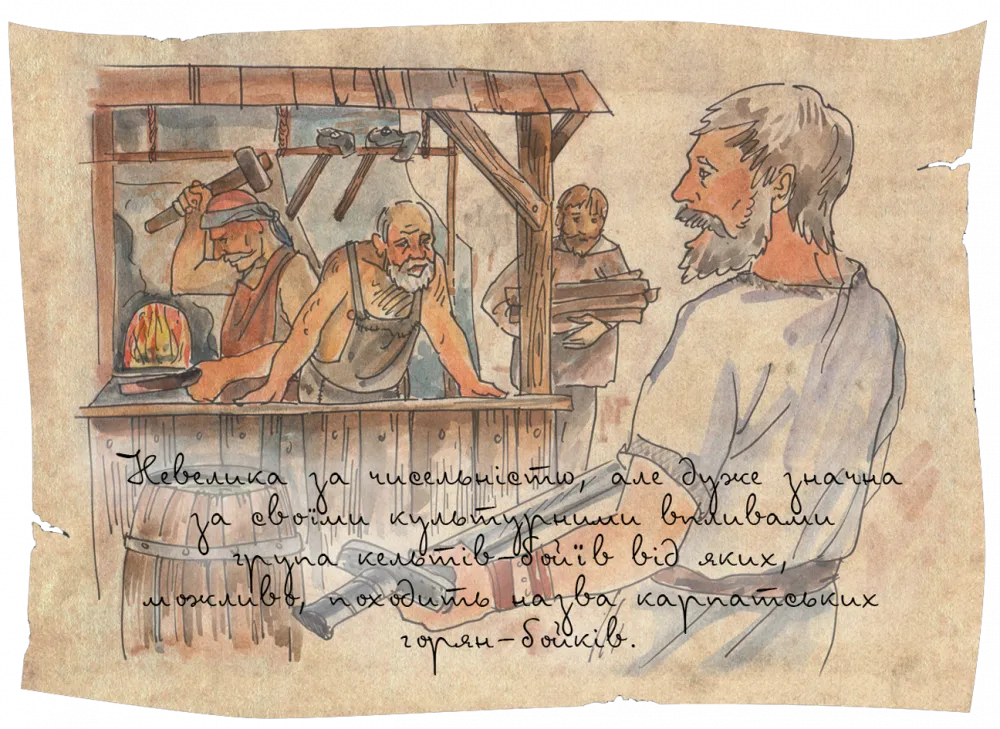 Невелика за чисельністю, але дуже значна
за своїми культурними впливами
група кельтів-бойїв від яких,
можливо, походить назва карпатських
горян-бойків.